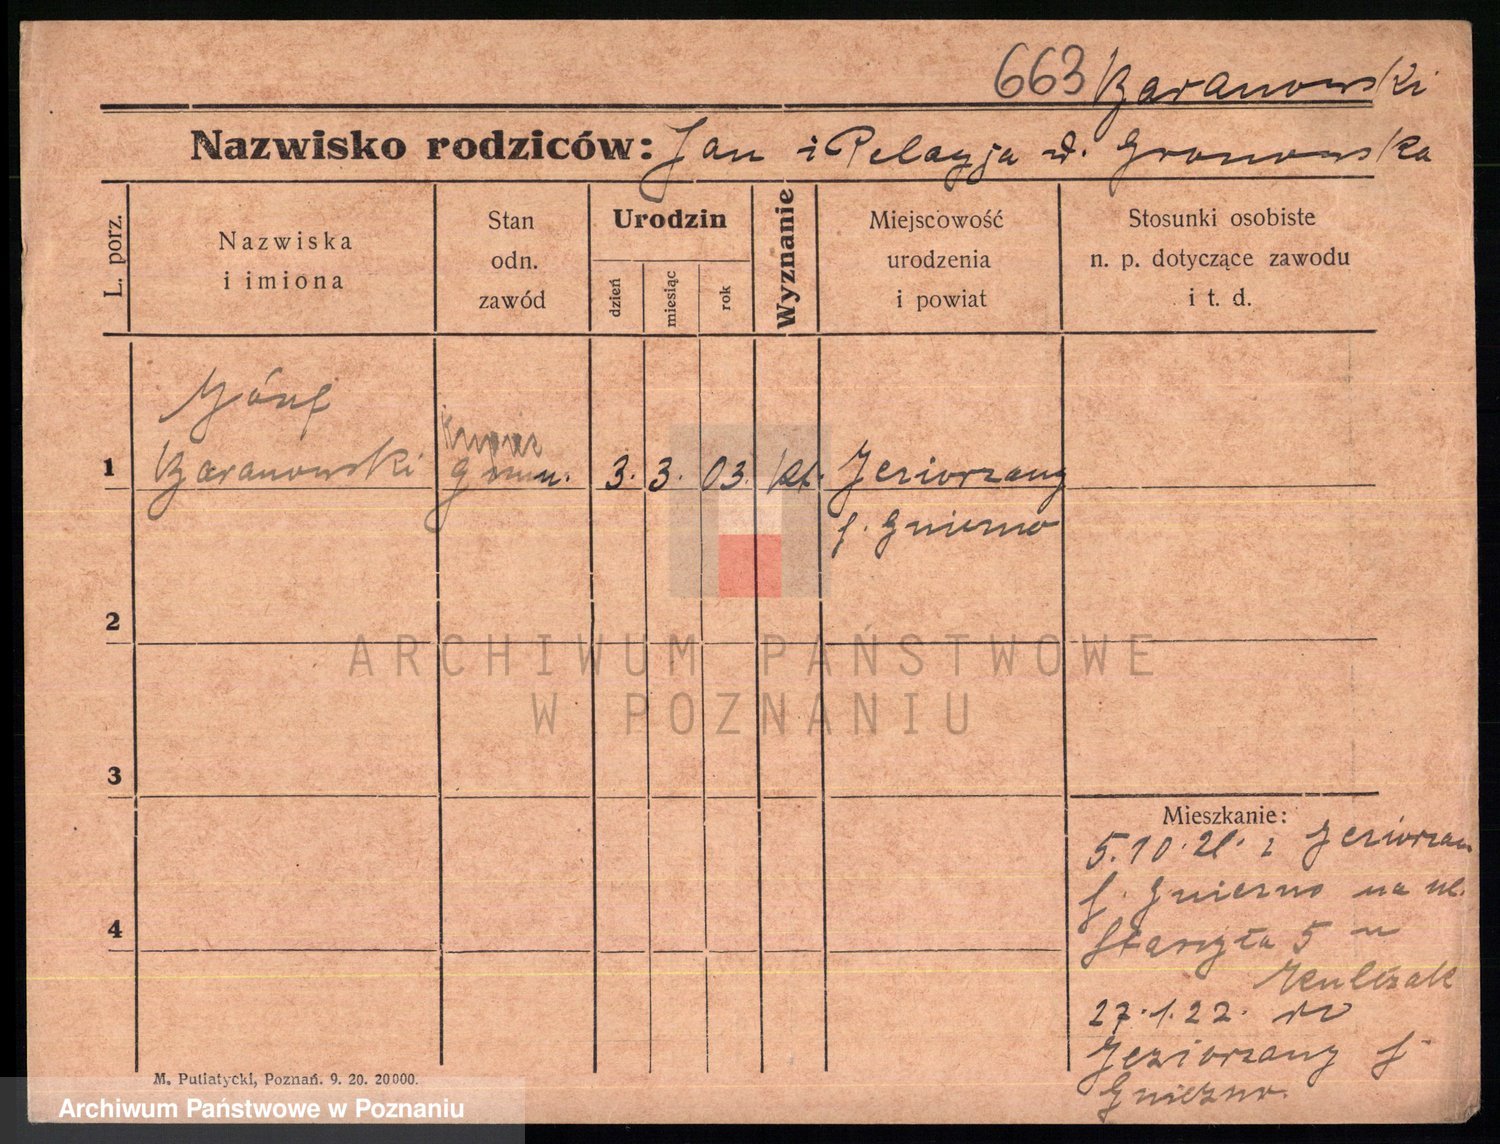 663 Baranowski
Nazwisko rodziców: Jan i Pelagja d. Gronowska
L. porz.
Nazwiska
i imiona
Stan
odn.
zawód
Urodzin
dzień
miesiąc
rok
Wyznanie
Miejscowość
urodzenia
i powiat
Stosunki osobiste
n. p. dotyczące zawodu
i t. d.
Józef
1 Baranowski 3. 3. 03. kt. Jeziorzany
p. Gniezno
2
ARCHIWUM PAŃSTWOWE
W POZNANIU
3
Mieszkanie:
5.10.21. z Jeziorzan
p. Gniezno na ul.
5 u
4
27.1.22. do
Jeziorzany p.
Gniezno.
M. Putiatycki, Poznań. 9. 20. 20000.
Archiwum Państwowe w Poznaniu